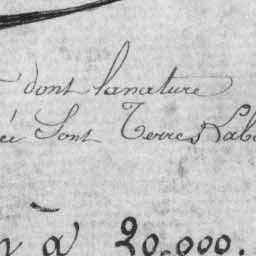 dont lanature
ée Sont Terres Lab
à 20,000.